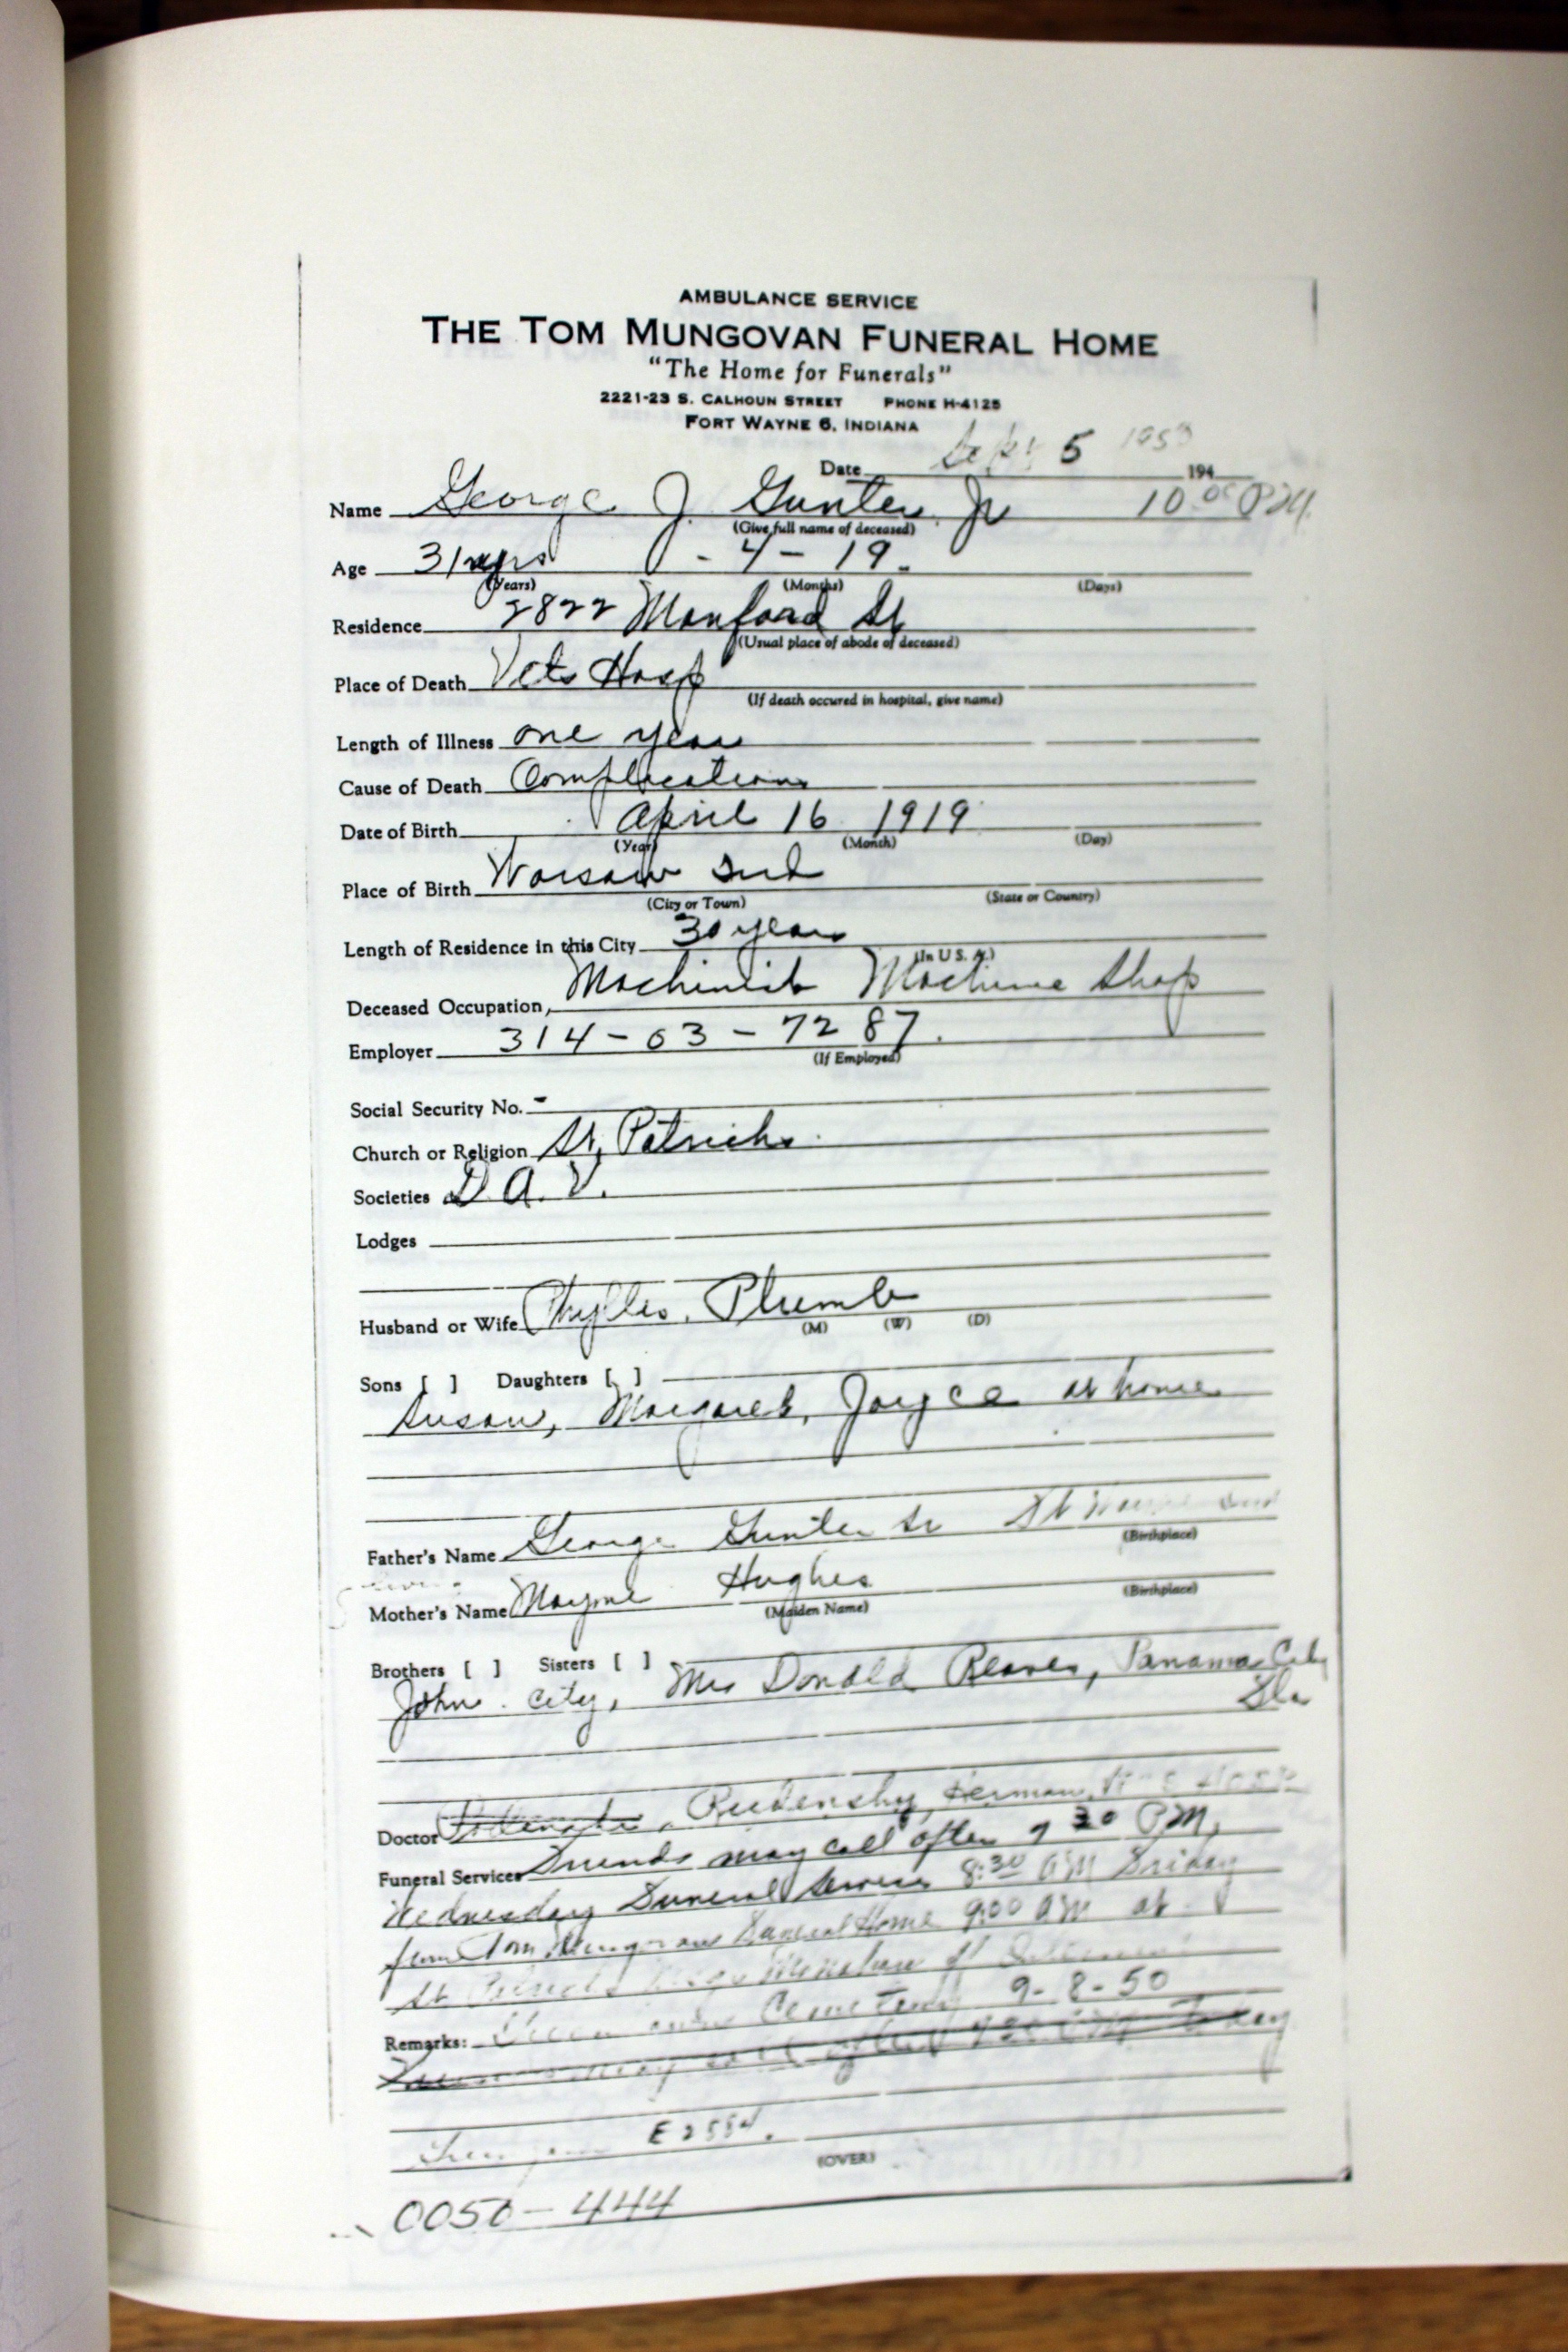 AMBULANCE SERVICE
THE TOM MUNGOVAN FUNERAL HOME
"The Home for Funerals"
2221-23 S. CALHOUN STREET PHONE H-4125
FORT WAYNE 6, INDIANA
Date Sept 5 1950 194
Name George J. Gunter Jr 10 00 P.M.
(Give full name of deceased)
Age 31 yrs - 4 - 19 -
(Years) (Months) (Days)
Residence 2822 Monford St
(Usual place of abode of deceased)
Place of Death Vets Hosp
(If death occured in hospital, give name)
Length of Illness one year
Cause of Death Complications
Date of Birth April 16 1919
(Year) (Month) (Day)
Place of Birth Warsaw Ind
(City or Town) (State or Country)
Length of Residence in this City 30 years
(In U. S. A.)
Deceased Occupation, Machinist Machine Shop
Employer 314-03-7287.
(If Employed)
Social Security No. -
Church or Religion St, Patricks
Societies D. A. V.
Lodges
Husband or Wife Phyllis. Plumb
(M) (W) (D)
Sons [ ] Daughters [ ]
Susan, Margaret, Joyce at home
Father's Name George Gunter Sr Ft Wayne Ind
(Birthplace)
Mother's Name Mayme Hughes
(Maiden Name) (Birthplace)
Brothers [ ] Sisters [ ]
John. City, Mrs Donald Reaves, Panama City
Fla
Doctor Rudensky, Herman, Hosp
Funeral Services Friends may call after 7 30 P.M,
Wednesday Funeral Services 8:30 AM Friday
from Tom Mungovan Funeral Home 9:00 AM at
St Patricks Msgr Monahan
Remarks: Cemetery 9-8-50
may call after 7 30 PM today
E 2554.
(OVER)
0050-444